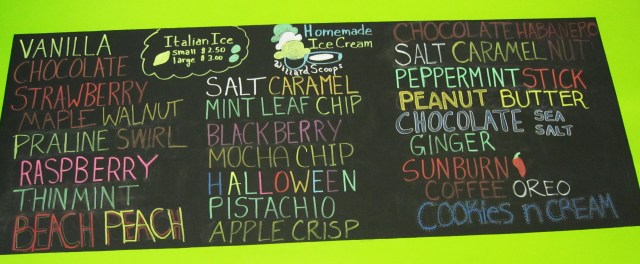 VANILLA
CHOCOLATE
STRAWBERRY
MAPLE WALNUT
PRALINE SWIRL
RASPBERRY
THIN MINT
BEACH PEACH
Italian Ice
small $2.50
large $3.00
Homemade
Ice Cream
Willard Scoops
SALT CARAMEL
MINT LEAF CHIP
BLACKBERRY
MOCHA CHIP
HALLOWEEN
PISTACHIO
APPLE CRISP
CHOCOLATE HABANERO
SALT CARAMEL NUT
PEPPERMINT STICK
PEANUT BUTTER
CHOCOLATE SEA SALT
GINGER
SUNBURN
COFFEE OREO
COOKIES n CREAM